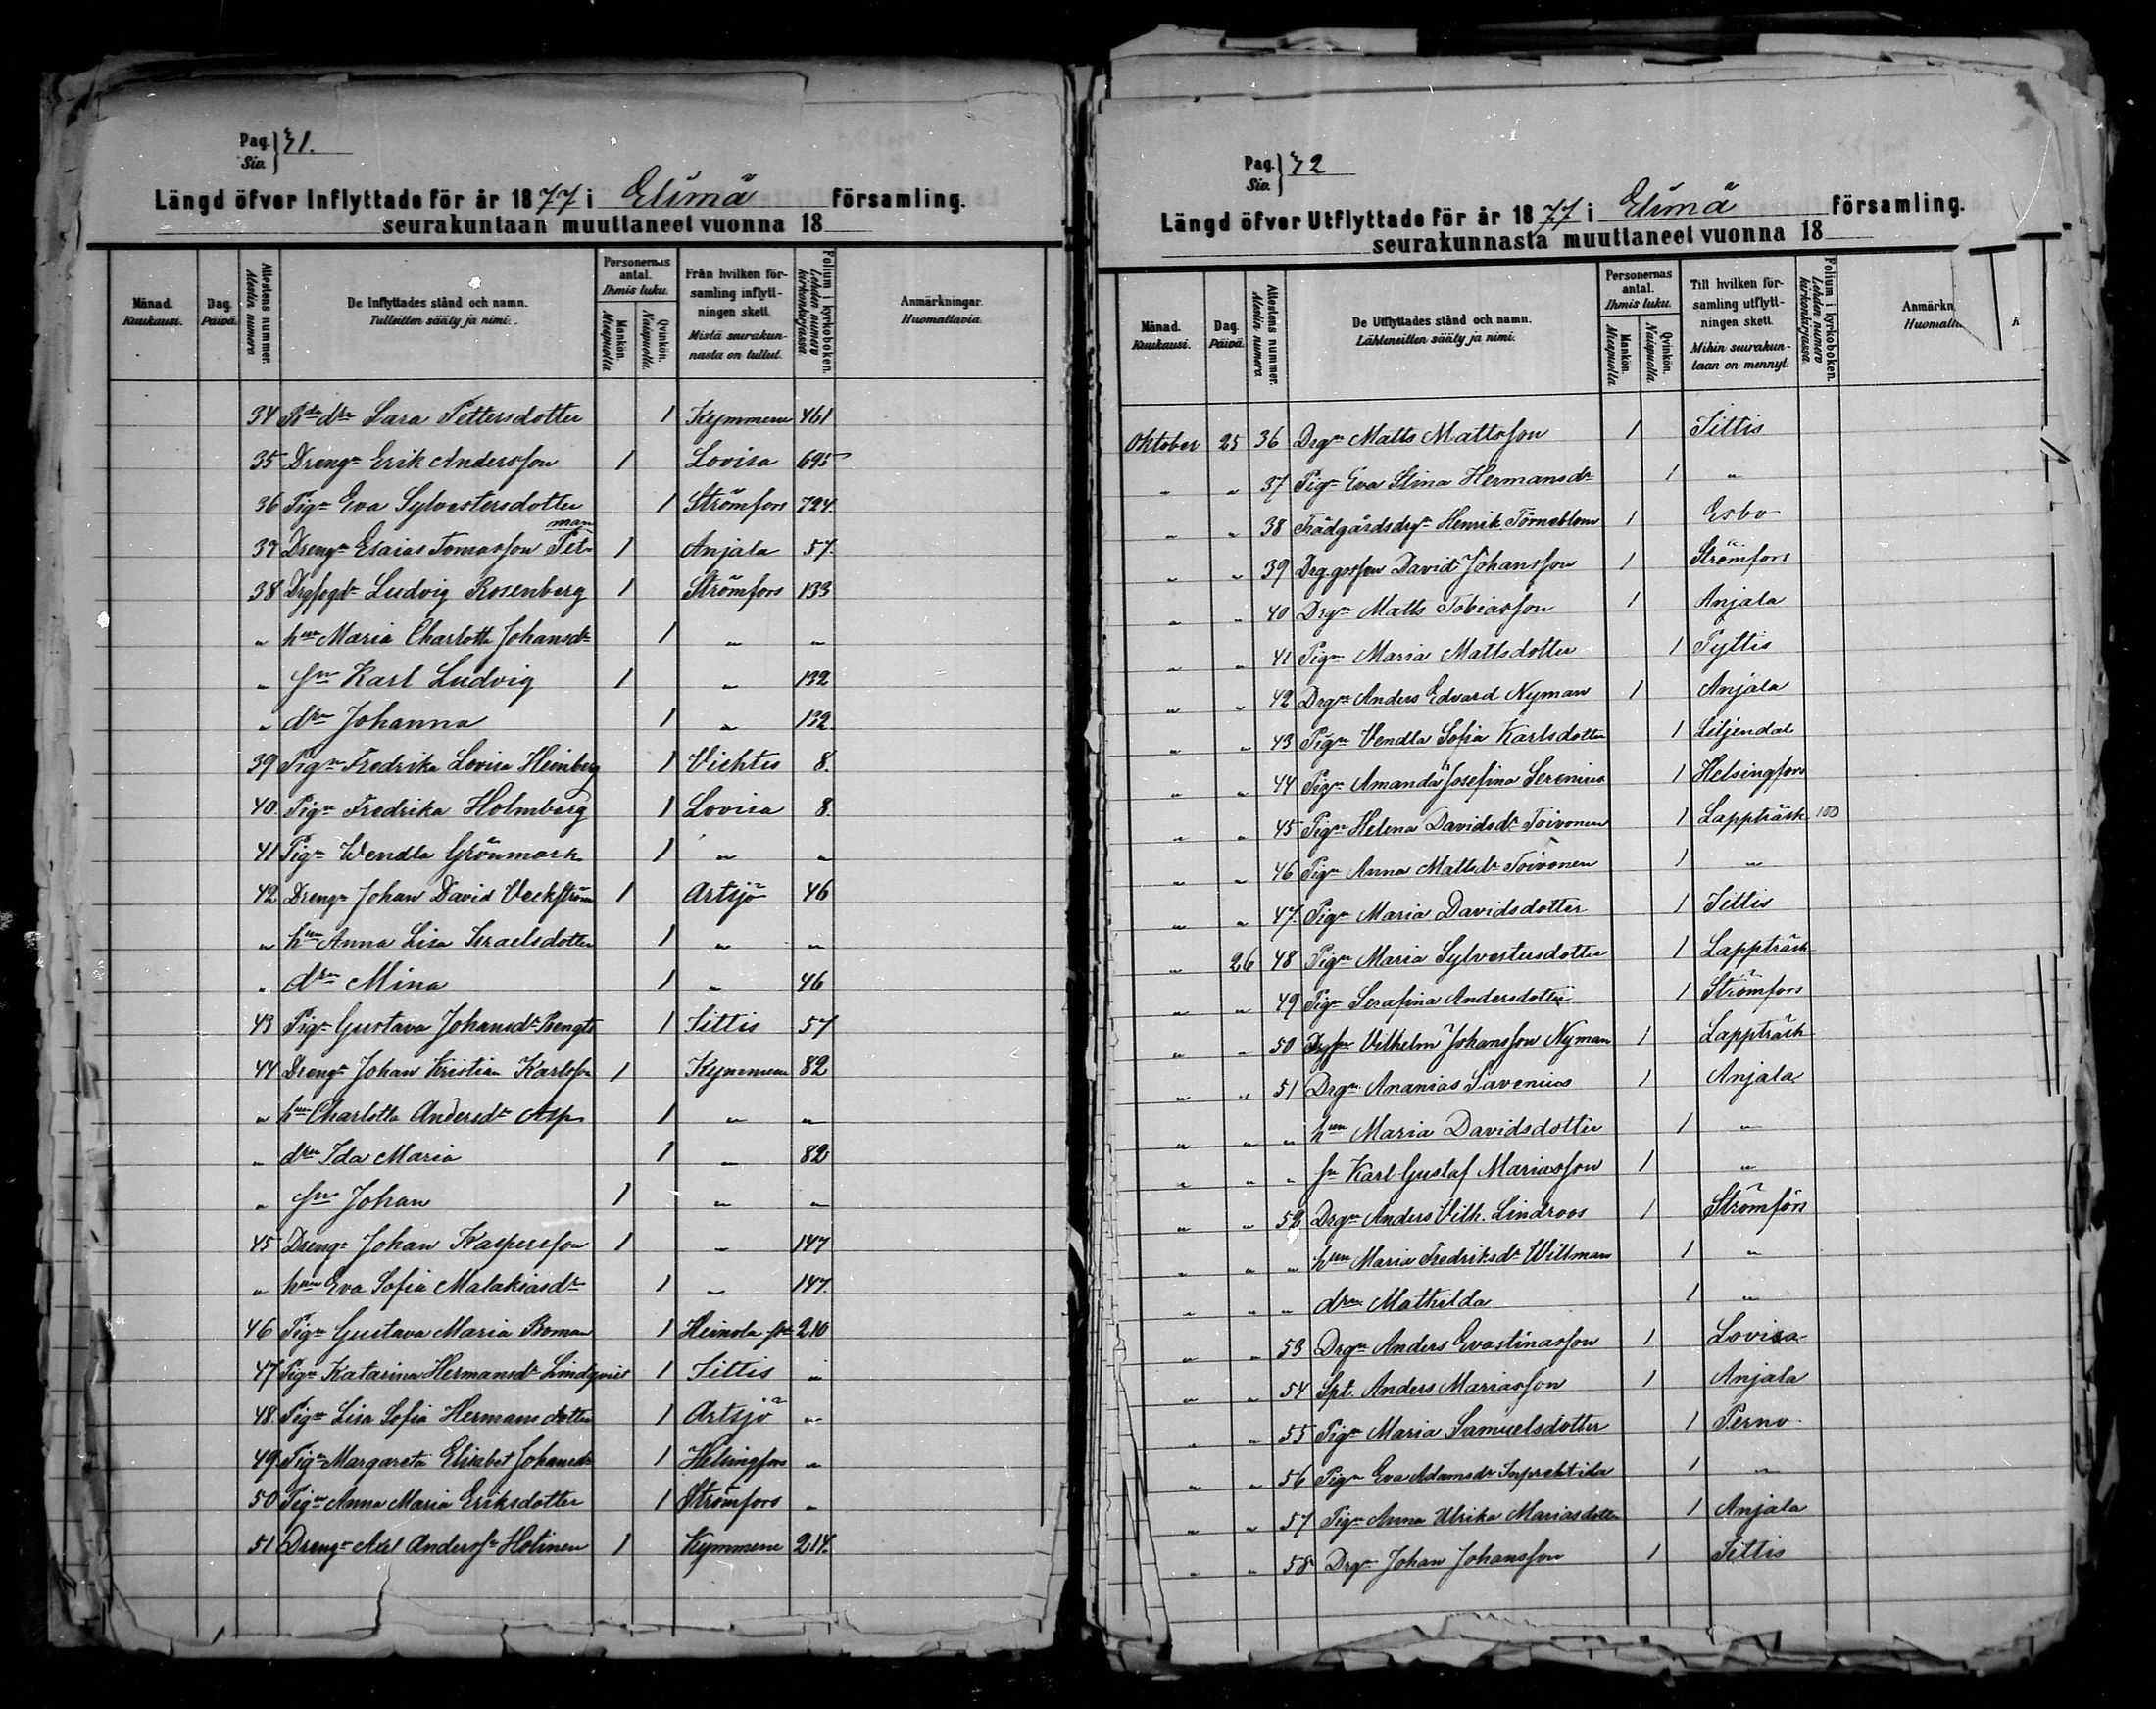 Pag. Siv. } 71.
Längd öfver Inflyttade för år 1877 i Elimä församling.
seurakuntaan muuttaneet vuonna 18
Månad. Kuukausi. Dag. Päivä. Attestens nummer. Atestin numero De Inflyttades stånd och namn. Tulleitten sääty ja nimi. Personernas antal. Ihmis luku. Mankön. Miespuolia Qvinkön. Naispuolia Från hvilken församling inflyttningen skett. Mistä seurakunnasta on tullut. Folium i kyrkoboken. Lehden numero kirkonkirjassa Anmärkningar. Huomattavia.
34 Bdedr Sara Pettersdotter 1 Kymmene 461
35 Drengn Erik Andersson 1 Lovisa 695
36 Pign Eva Sylvestersdotter 1 Strömfors 724.
37 Drengn Esaias Tomasson Petman 1 Anjala 57.
38 Ludvig Rosenberg 1 Strömfors 133
" hun Maria Charlotta Johansdr 1 " "
" sn Karl Ludvig 1 " 132
" drn Johanna 1 " 132.
39 Pign Fredrika Lovisa Heinberg 1 Vichtis 8.
40. Pign Fredrika Holmberg 1 Lovisa 8.
41 Pign Wendla Grönmark 1 " "
42 Drengn Johan David Veckström 1 Artsjö 46
" hun Anna Lisa Israelsdotter 1 " "
" drn Mina 1 " 46
43 Pign Gustava Johansdr Bengts 1 Sittis 57
44 Drengn Johan Kristian Karlsson 1 Kymmene 82
" hun Charlotta Andersdr Asp 1 " "
" drn Ida Maria 1 " 82
" sn Johan 1 " "
45 Drengn Johan Kaspersson 1 " 147
" hun Eva Sofia Malakiasdr 1 " 147.
46 Pign Gustava Maria Boman 1 Heinola 210
47 Pign Katarina Hermansdr Lindqvist 1 Sittis "
48. Pign Lisa Sofia Hermansdotter 1 Artsjö "
49 Pign Margareta Elisabet Johansdr 1 Helsingfors "
50 Pign Anna Maria Eriksdotter 1 Strömfors "
51 Drengn Axel Anderss Hotinen 1 Kymmene 214.
Pag. Siv. } 72
Längd öfver Utflyttade för år 1877 i Elimä församling.
seurakunnasta muuttaneet vuonna 18
Månad. Kuukausi. Dag. Päivä. Attestens nummer. Atestin numero De Utflyttades stånd och namn. Lähteneitten sääty ja nimi. Personernas antal. Ihmis luku. Mankön. Miespuolia Qvinkön. Naispuolia Till hvilken församling utflyttningen skett. Mihin seurakuntaan on mennyt. Folium i kyrkoboken. Lehden numero kirkonkirjassa. Anmärkn Huomatta
Oktober 25 36 Drgn Matts Mattsson 1 Sittis
" " 37 Pign Eva Stina Hermansdr 1 "
" " 38 Trädgårdsdrgn Henrik Törneblom 1 Esbo
" " 39 David Johansson 1 Strömfors
" " 40 Drgn Matts Tobiasson 1 Anjala
" " 41 Pign Maria Mattsdotter 1 Pyttis
" " 42 Drgn Anders Edvard Nyman 1 Anjala
" " 43 Pign Vendla Sofia Karlsdotter 1 Liljendal
" " 44 Pign Amanda Josefina Serenius 1 Helsingfors
" " 45 Pign Helena Davidsdr Toivonen 1 Lappträsk 100
" " 46 Pign Anna Mattsdr Toivonen 1 "
" " 47. Pign Maria Davidsdotter 1 Sittis
" 26 48 Pign Maria Sylvestersdotter 1 Lappträsk
" " 49 Pign Serafina Andersdotter 1 Strömfors
" " 50 Vilhelm Johansson Nyman 1 Lappträsk
" " 51 Drgn Ananias Savenius 1 Anjala
" " " hun Maria Davidsdotter 1 "
" " " sn Karl Gustaf Mariasson 1 "
" " 52 Drgn Anders Vilh. Lindroos 1 Strömfors
" " " hun Maria Fredriksdr Willman 1 "
" " " drn Mathilda 1 "
" " 53 Drgn Anders Evastinasson 1 Lovisa
" " 54 Spt. Anders Mariasson 1 Anjala
" " 55 Pign Maria Samuelsdotter 1 Perno
" " 56 Pign Eva Adamsdr 1 "
" " 57 Pign Anna Ulrika Mariasdotter 1 Anjala
" " 58 Drgn Johan Johansson 1 Sittis